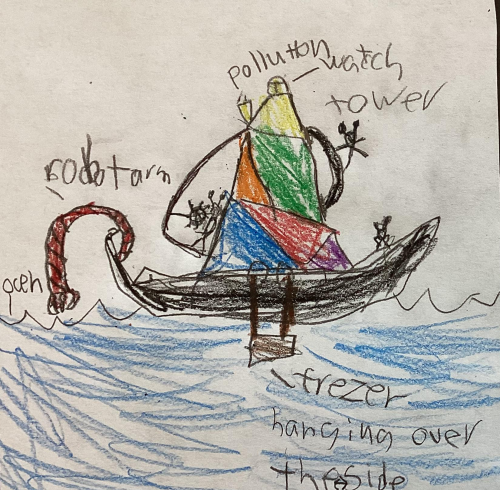 pollution watch
tower
robot arm
frezer
hanging over
the side